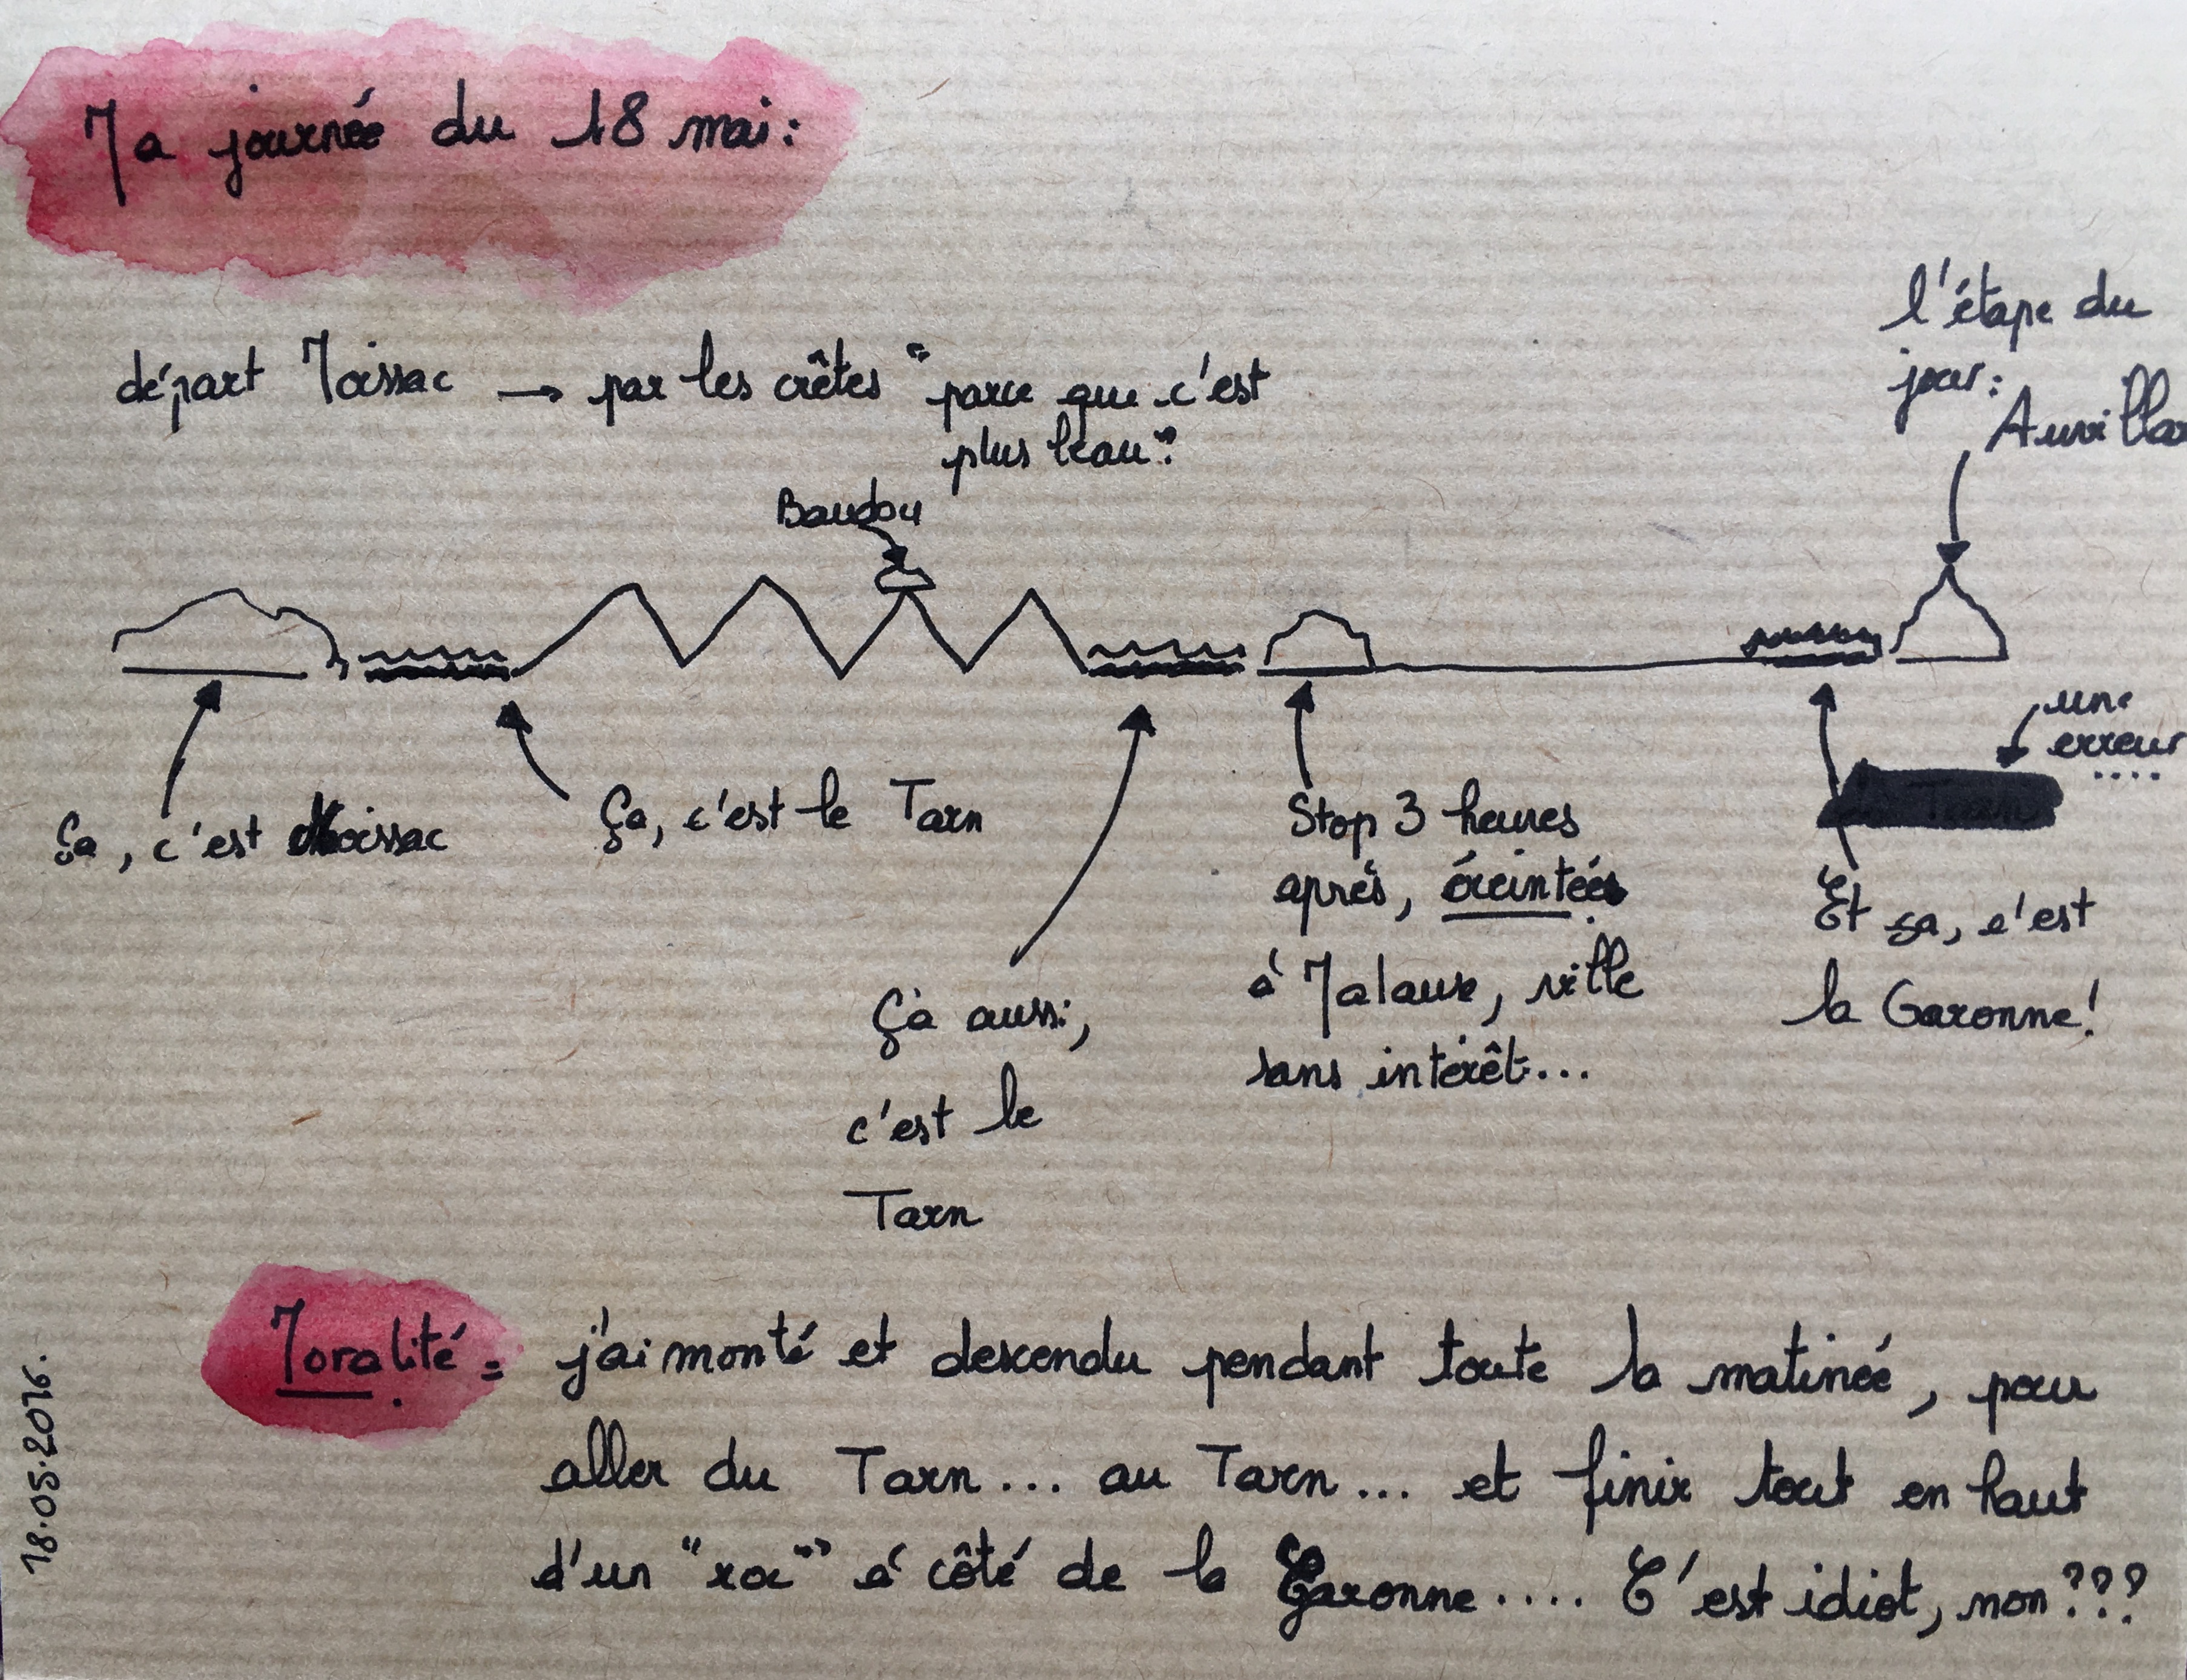 Ma journée du 18 mai :
départ Moissac → par les crêtes "parce que c'est
plus beau"
l'étape du
jour :
Auvillar
Baudou
Ça, c'est Moissac
Ça, c'est le Tarn
Çà aussi,
c'est le
Tarn
Stop 3 heures
après, éreintées
à Malause, ville
sans intérêt...
une
erreur
....
Et ça, c'est
la Garonne !
Moralité = j'ai monté et descendu pendant toute la matinée, pour
aller du Tarn... au Tarn... et finir tout en haut
d'un "roc" à côté de la Garonne.... C'est idiot, non ???
18.05.2016.